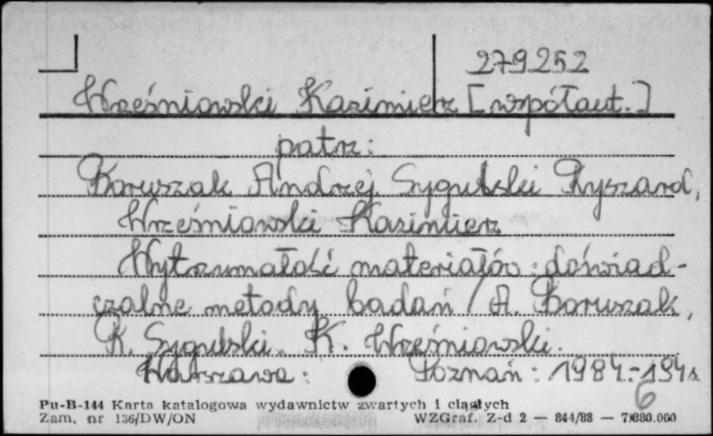 279252
Wrześniowski Kazimierz [współaut.]
patrz:
Boruszak Andrzej, Sygulski Ryszard,
Wrześniowski Kazimierz
Wytrzymałość materiałów : doświad-
czalne metody badań / A. Boruszak,
R. Sygulski, K. Wrześniowski.
Warszawa : Poznań : 1984.- 194s
6
Pu-B-144 Karta katalogowa wydawnictw zwartych i ciągłych
Zam. nr 136/DW/ON WZGraf. Z-d 2 — 844/88 —